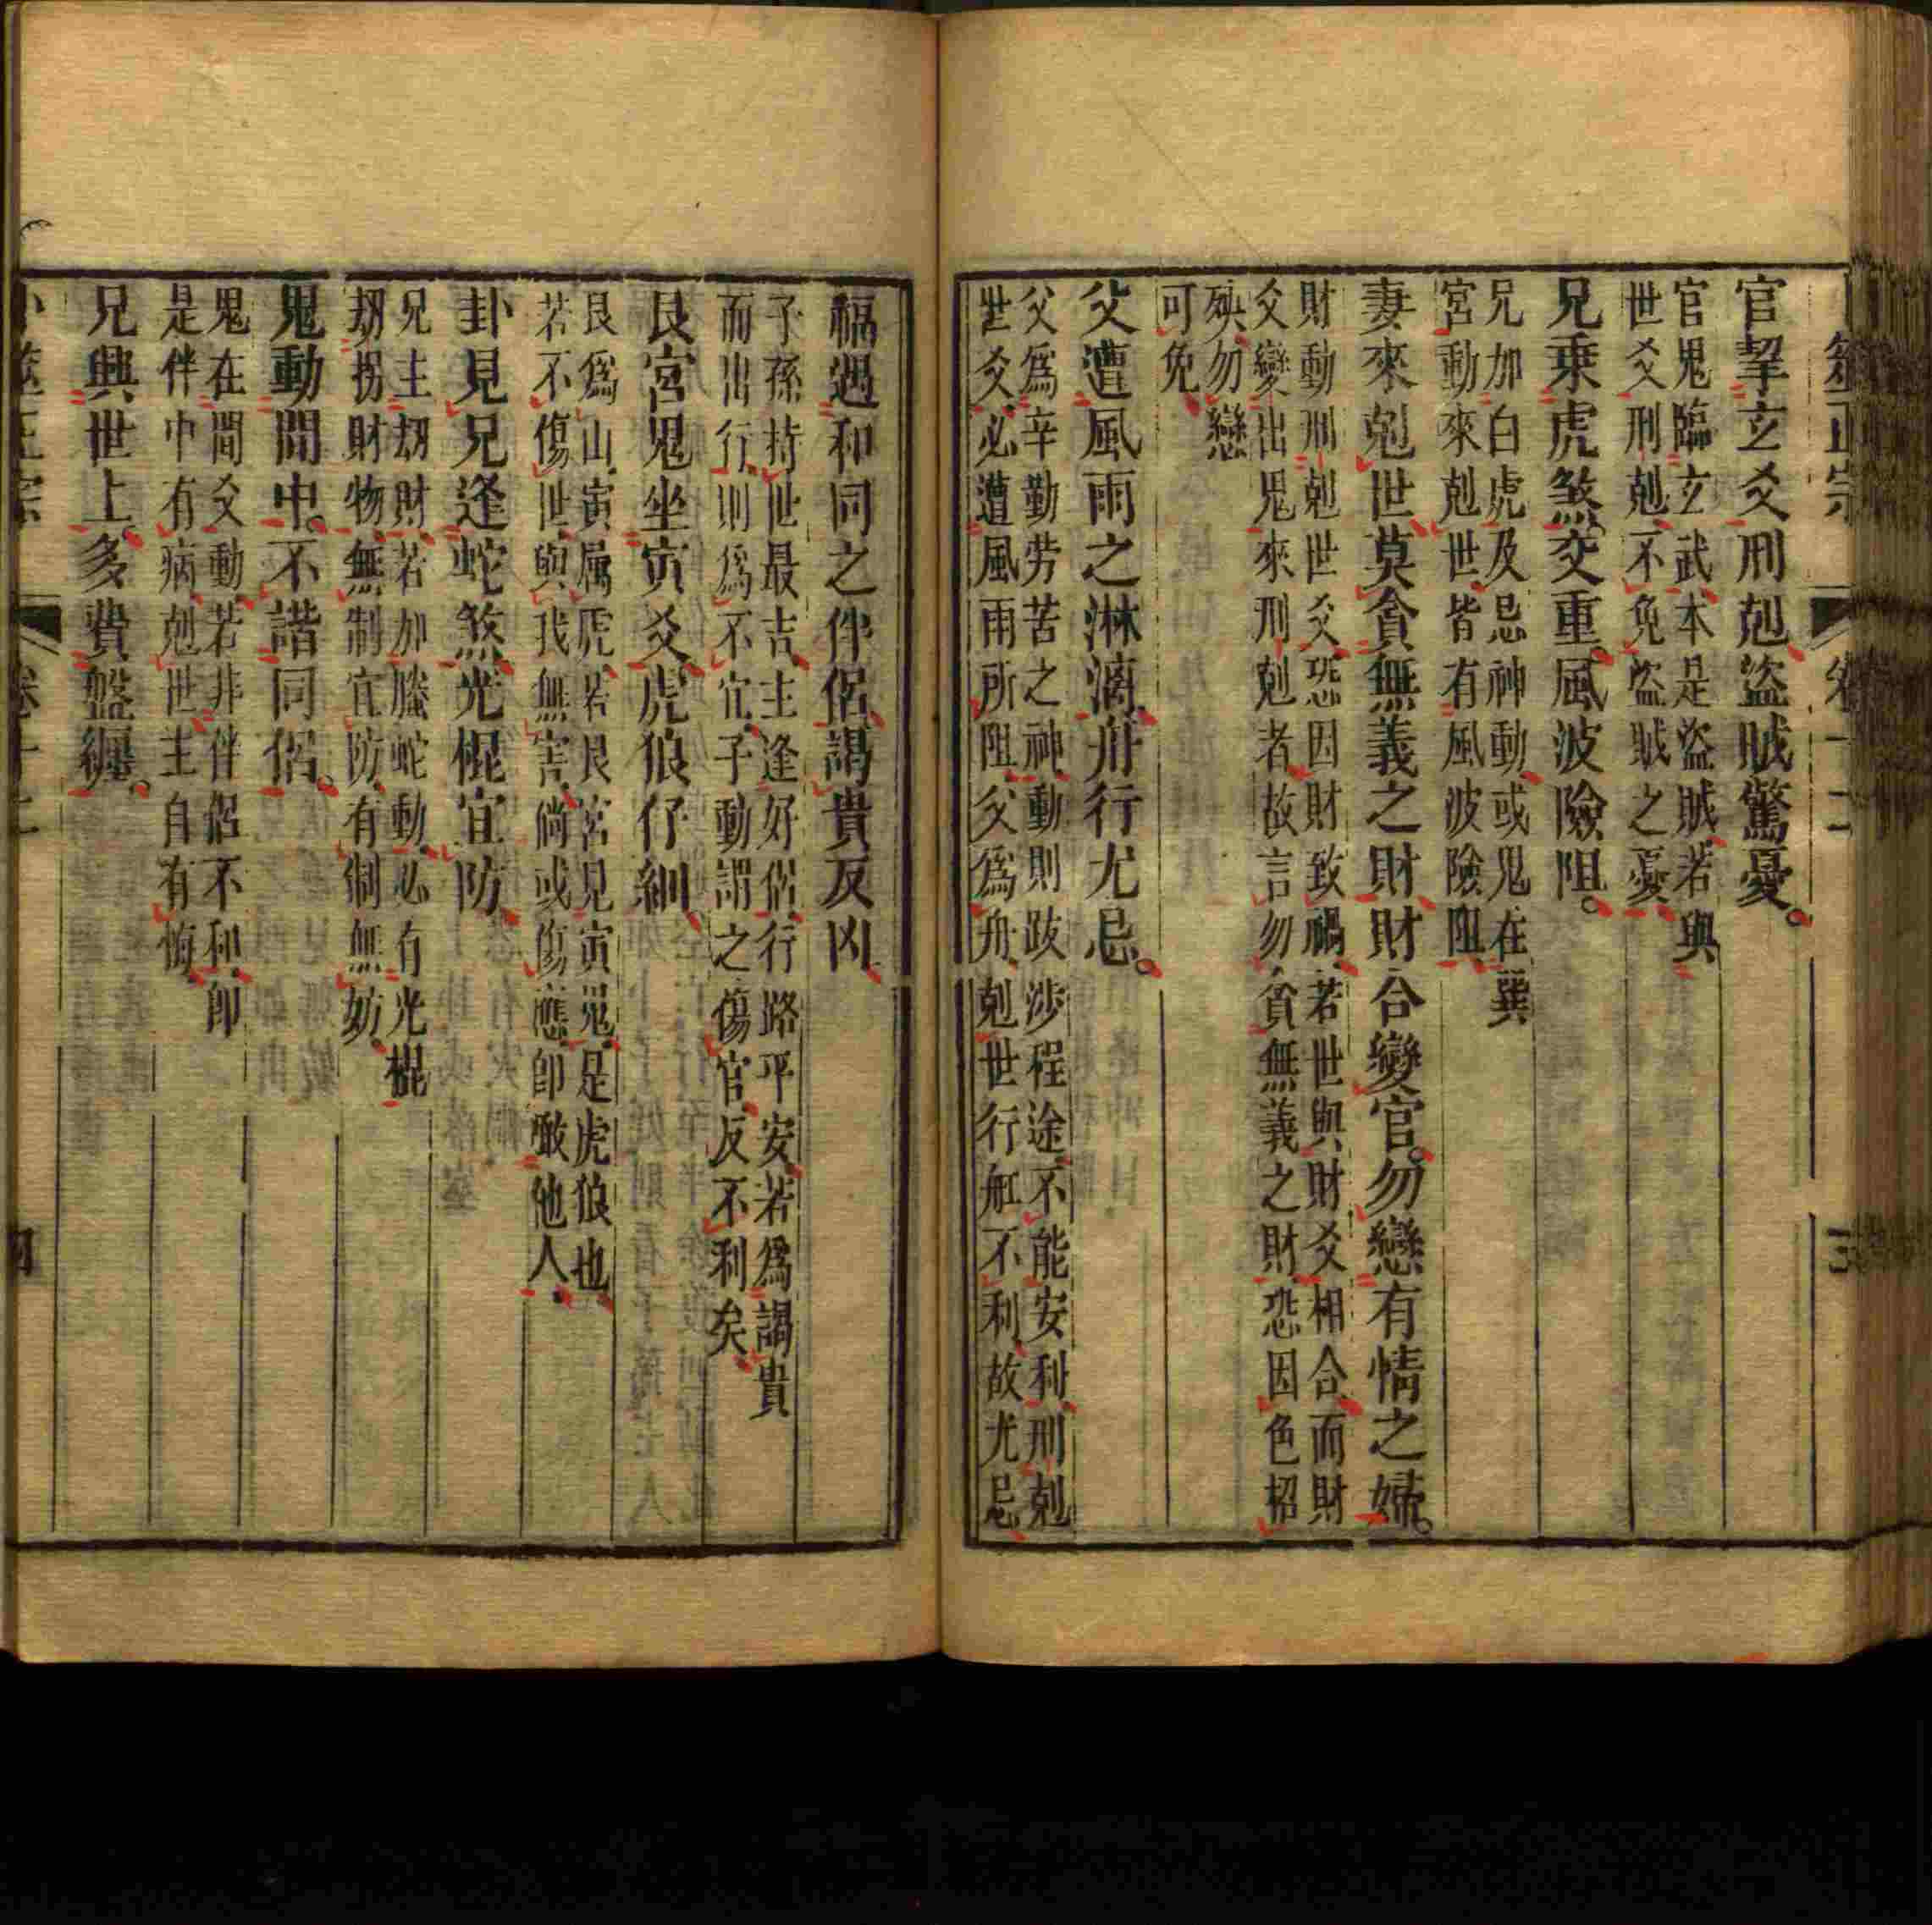 筮正宗 卷十二 三
官挈玄爻刑剋盜賊驚憂
官鬼臨玄武本是盜賊若與
世爻刑剋不免盜賊之憂
兄乗虎煞交重風波險阻
兄加白虎及忌神動或鬼在巽
宮動來剋世皆有風波險阻
妻來剋世莫貪無義之財財合變官勿戀有情之婦
財動刑剋世爻恐因財致禍若世與財爻相合而財
爻變出鬼來刑剋者故言勿貪無義之財恐因色招
殃勿戀
可免
父遭風雨之淋漓舟行尤忌
父爲辛勤劳苦之神動則跋涉程途不能安利刑剋
世爻必遭風雨所阻父爲舟剋世行舡不利故尤忌
福遇和同之伴侶謁貴反凶
子孫持世最吉主逢好侶行路平安若爲謁貴
而出行則爲不宜子動謂之傷官反不利矣
艮宮鬼坐寅爻虎狼仔細
艮爲山寅属虎若艮宮見寅鬼是虎狼也
若不傷世與我無害倘或傷應卽敵他人
卦見兄逢蛇煞光棍宜防
兄主刼財若加螣蛇動必有光棍
刼拐財物無制宜防有制無妨
鬼動間中不諧同侶
鬼在間爻動若非伴侶不和卽
是伴中有病剋世主自有悔
兄興世上多費盤纏
卜筮正宗 卷十二 四